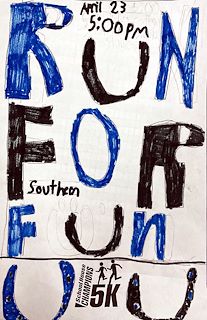 April 23
5:00PM
RUN
FOR
Southern
Fun
Schoolhouse
CHAMPIONS
5K